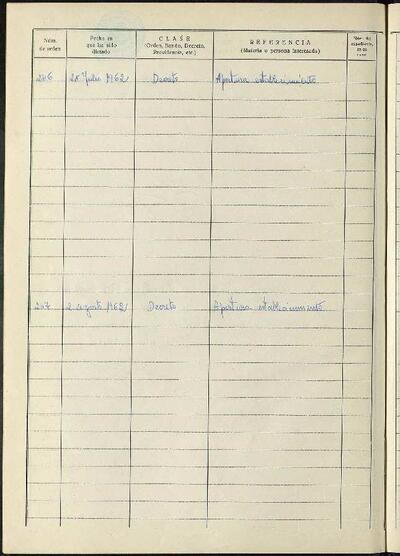 Núm. de orden
Fecha en que ha sido dictado
CLASE
(Orden, Bando, Decreto, Providencia, etc.)
REFERENCIA
(Materia o persona interesada)
246 28 Julio 1962 Decreto Apertura establecimiento
247 2 agosto 1962 Decreto Apertura establecimiento